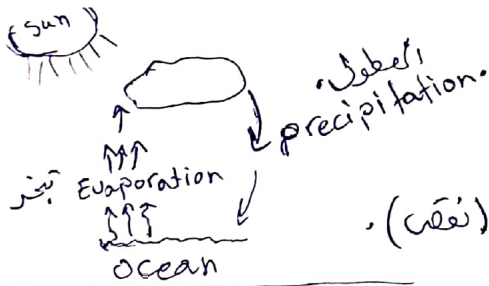 sun
الهطول.
precipitation.
تبخر Evaporation
Ocean